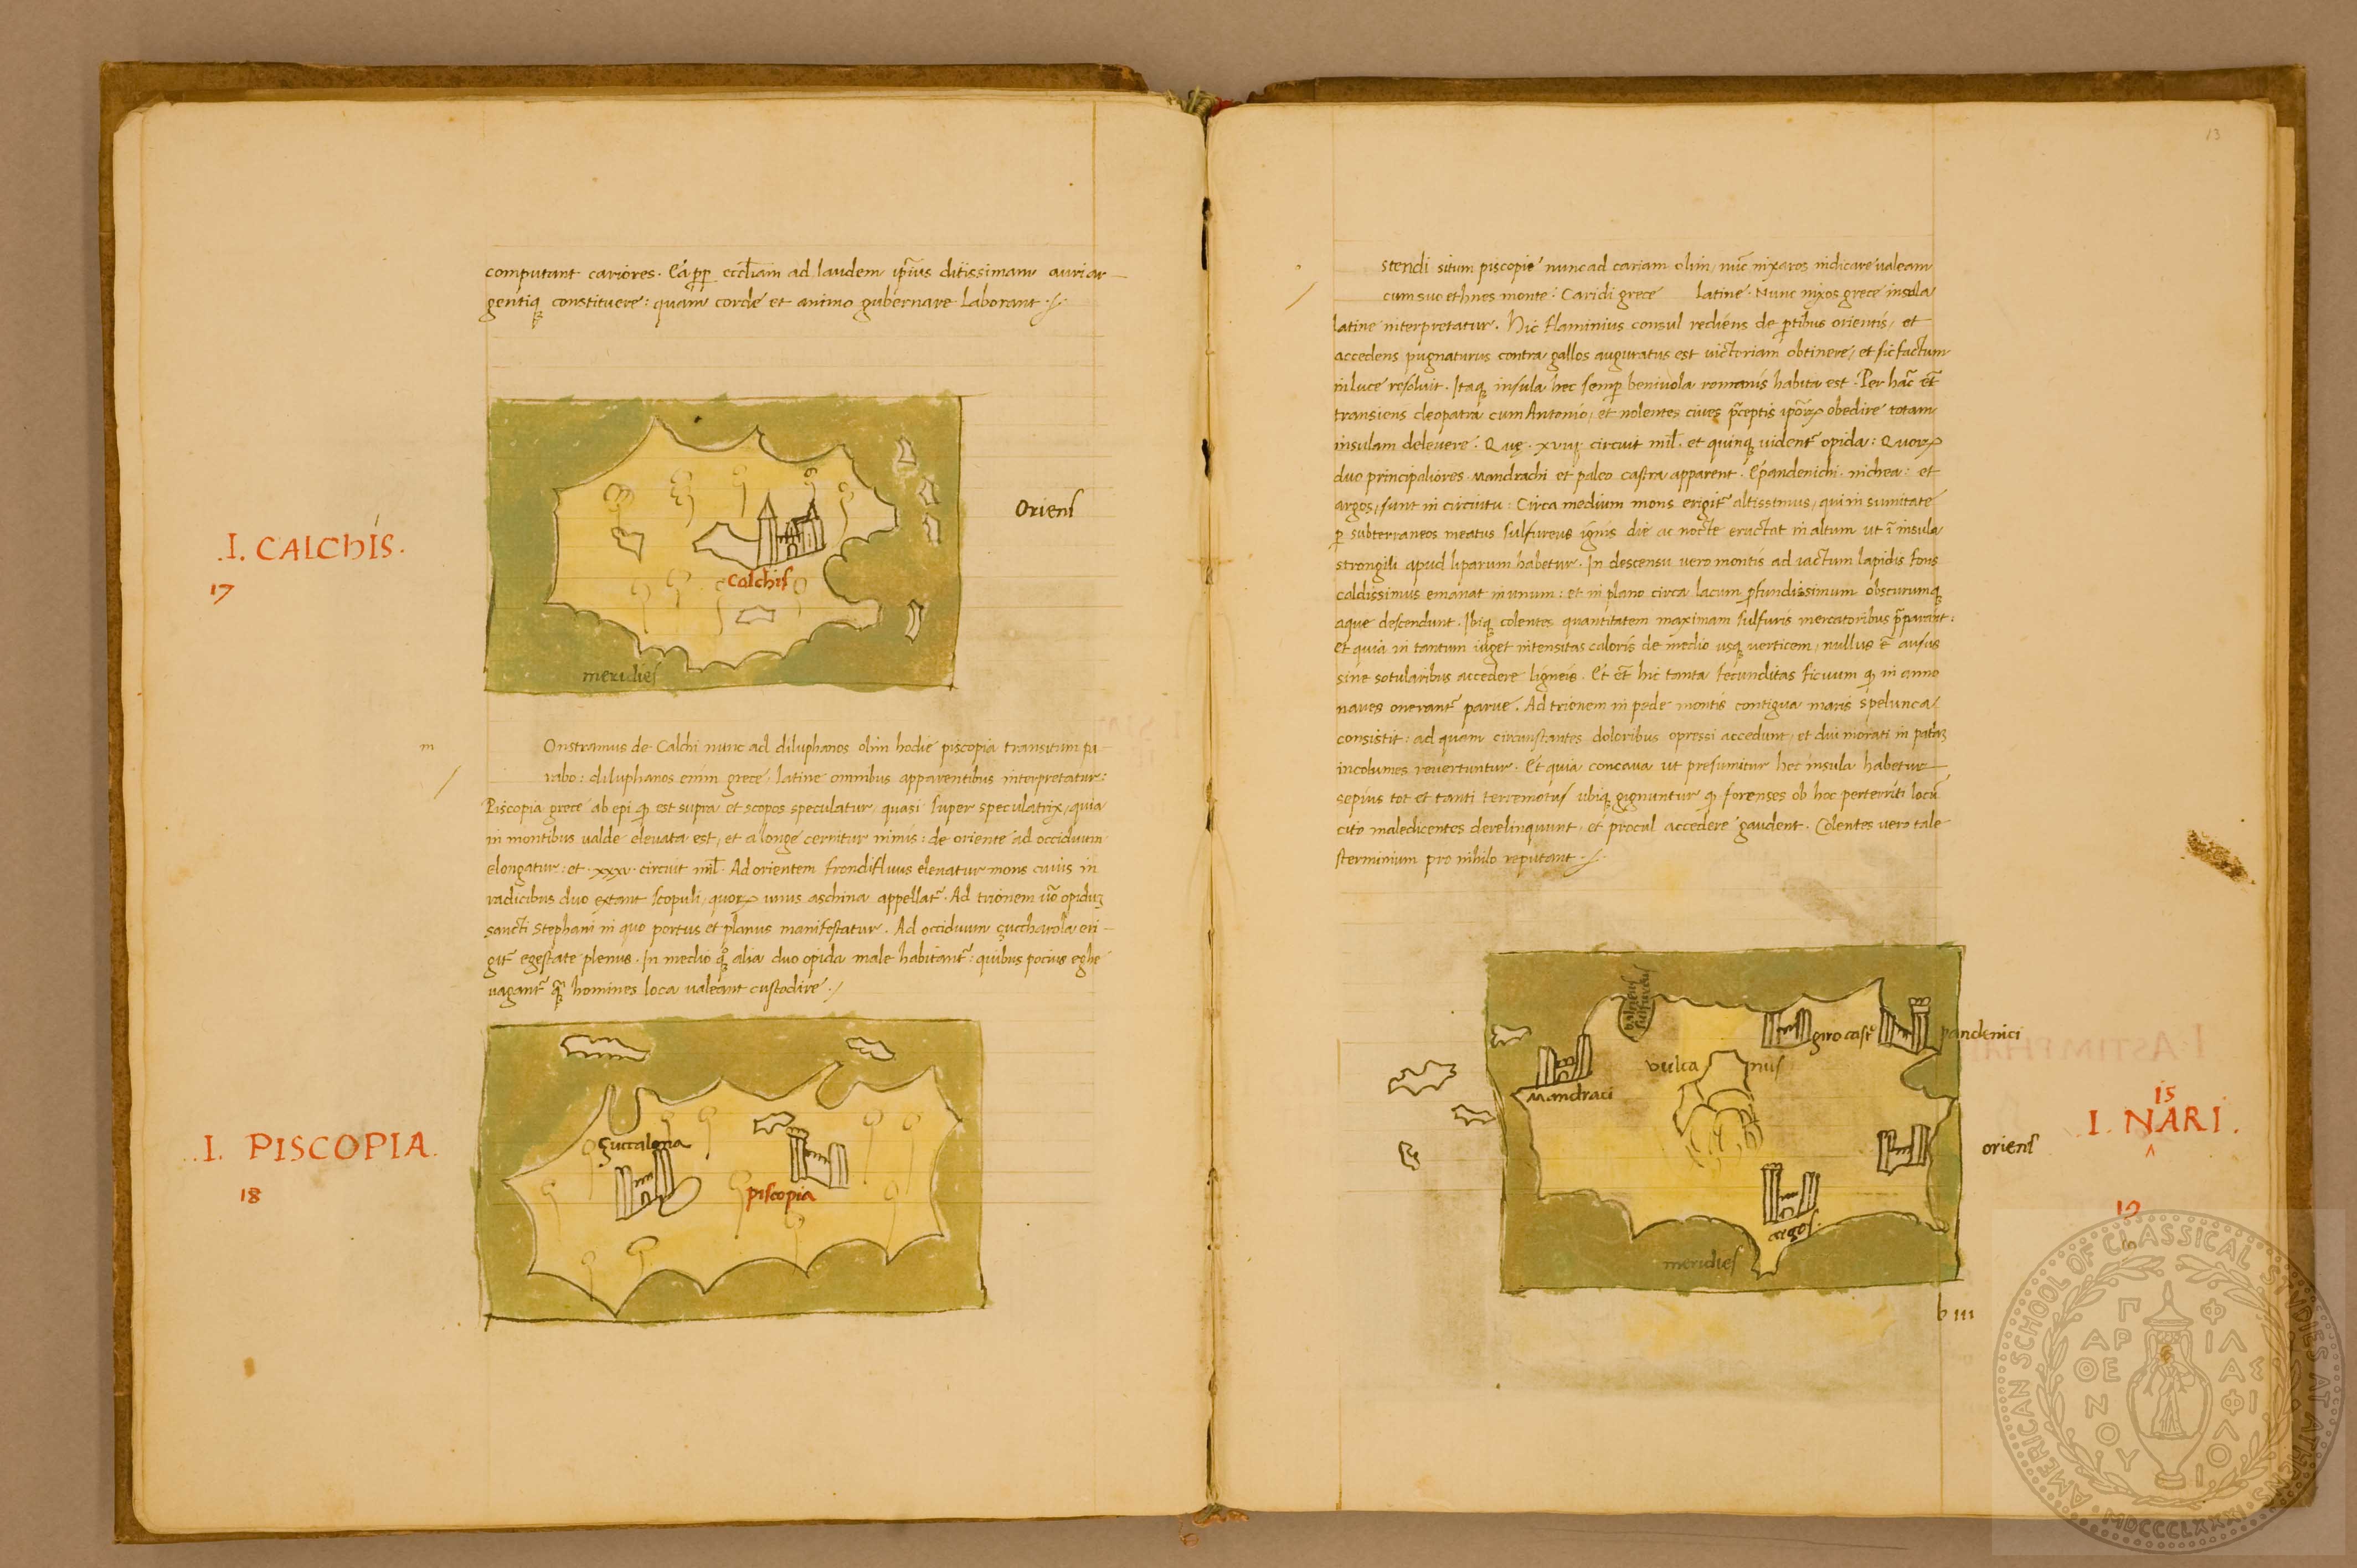 computant cariores. Eá ꝓpꝑ eccl̄iam ad laudem ip̄ius ditissimam auri ar
gentiq̨ constituere: quam corde et animo gubernare laborant./.
I. CALCHIS.
17
Orienſ
Calchiſ
meridieſ
m
Onstramus de Calchi nunc ad diluphanos olim hodie piscopia transitum pa
rabo: diluphanos enim grece latine omnibus apparentibus interpretatur:
Piscopia grece ab epi qđ est supra et scopos speculatur, quasi super speculatrix, quia
in montibus valde elevata est, et a longe cernitur nimis: de oriente ad occiduum
elongatur: et .xxxv. circuit mil̄. Ad orientem frondifluus elevatur mons cuius in
radicibus duo extant scopuli, quoꝝ unus aschina appellat̃. Ad trionem v̄o opiduꝫ
sancti Stephani in quo portus et planus manifestatur. Ad occiduum çuccharola eri
git̃ egestate plenus. In medio qͦꝫ alia duo opida male habitant̃: quibus pocius eghe
vagant̃ qͣꝫ homines loca valeant custodire./
I. PISCOPIA.
18
çuccaloria
piſcopia
13
Stendi situm piscopie nunc ad cariam olim, nūc nixaros indicare valeam
cum suo ethnes monte: Caridi grece latine. Nunc nixos grece insula
latine interpretatur. Hic flaminius consul rediens de ꝑtibus orientis, et
accedens pugnaturus contra gallos auguratus est victoriam obtinere, et sic factum
in luce resoluit. Itaq̨ insula hec semꝑ beniuola romanis habita est. Per hāc et̄
transiens cleopatra cum Antonio, et nolentes ciues p̄ceptis ip̄oꝝ obedire totam
insulam delevere. Quę .xviij. circuit mil̄. et quinq̨ vident̃ opida: Quoꝝ
duo principaliores Mandrachi et paleo castra apparent. E pandenichi. nichea: et
argos, sunt in circuitu: Circa medium mons erigit̃ altissimus, qui in sumitate
ꝑ subterraneos meatus sulfureus ignis die ac nocte eructat in altum ut ī insula
strongili apud liparum habetur. In descensu vero montis ad iactum lapidis fons
caldissimus emanat in unum: et in plano circa lacum ꝓfundissimum obscurumq̨
aque descendunt. Ibiq̨ colentes quantitatem maximam sulfuris mercatoribus p̄parant:
et quia in tantum viget intensitas caloris de medio usq̨ verticem, nullus ē ausus
sine sotularibus accedere ligneis. Et et̄ hic tanta fecunditas ficuum qđ in anno
naues onerant̃ parue. Ad trionem in pede montis contigua maris spelunca
consistit: ad quam circunstantes doloribus opressi accedunt, et diu morati in
incolumes revertuntur. Et quia concava ut presumitur hec insula habetur
sepius tot et tanti terremotus ubiq̨ gignuntur qđ forenses ob hoc perterriti locū
cito maledicentes derelinquunt, et procul accedere gaudent. Colentes vero tale
sterminium pro nihilo reputant./.
balneuſ
sulfureuſ
giro caſt̄
pandenici
vulca nuſ
Mandraci
orienſ
argoſ
meridieſ
15
I. NARI.
^
19
b iii
AMERICAN SCHOOL OF CLASSICAL STUDIES AT ATHENS
ΠΑΡΘΕΝΟΥ ΦΙΛΑΣ ΦΙΛΟΙ
MDCCCLXXXI